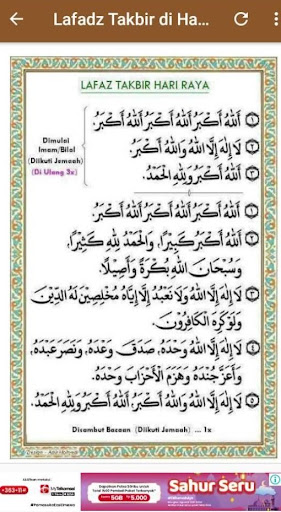 Lafadz Takbir di Ha...
LAFAZ TAKBIR HARI RAYA
Dimulai
Imam/Bilal
(Diikuti Jemaah)
(Di Ulang 3x)
١ اَللهُ أَكْبَرُ اَللهُ أَكْبَرُ اَللهُ أَكْبَرُ.
٢ لَا إِلٰهَ إِلَّا اللهُ وَاللهُ أَكْبَرُ.
٣ اَللهُ أَكْبَرُ وَلِلّٰهِ الْحَمْدُ.
١ اَللهُ أَكْبَرُ اَللهُ أَكْبَرُ اَللهُ أَكْبَرُ.
٢ اَللهُ أَكْبَرُ كَبِيْرًا، وَالْحَمْدُ لِلّٰهِ كَثِيْرًا،
وَسُبْحَانَ اللهِ بُكْرَةً وَأَصِيْلًا.
٣ لَا إِلٰهَ إِلَّا اللهُ وَلَا نَعْبُدُ إِلَّا إِيَّاهُ مُخْلِصِيْنَ لَهُ الدِّيْنَ
وَلَوْ كَرِهَ الْكَافِرُوْنَ.
٤ لَا إِلٰهَ إِلَّا اللهُ وَحْدَهُ، صَدَقَ وَعْدَهُ، وَنَصَرَ عَبْدَهُ،
وَأَعَزَّ جُنْدَهُ وَهَزَمَ الْأَحْزَابَ وَحْدَهُ.
٥ لَا إِلٰهَ إِلَّا اللهُ وَاللهُ أَكْبَرُ اَللهُ أَكْبَرُ وَلِلّٰهِ الْحَمْدُ.
Disambut Bacaan (Diikuti Jemaah) ... 1x
Aktifkan melalui:
*363*11#
MyTelkomsel
5GB Rp5.000
Sahur Seru